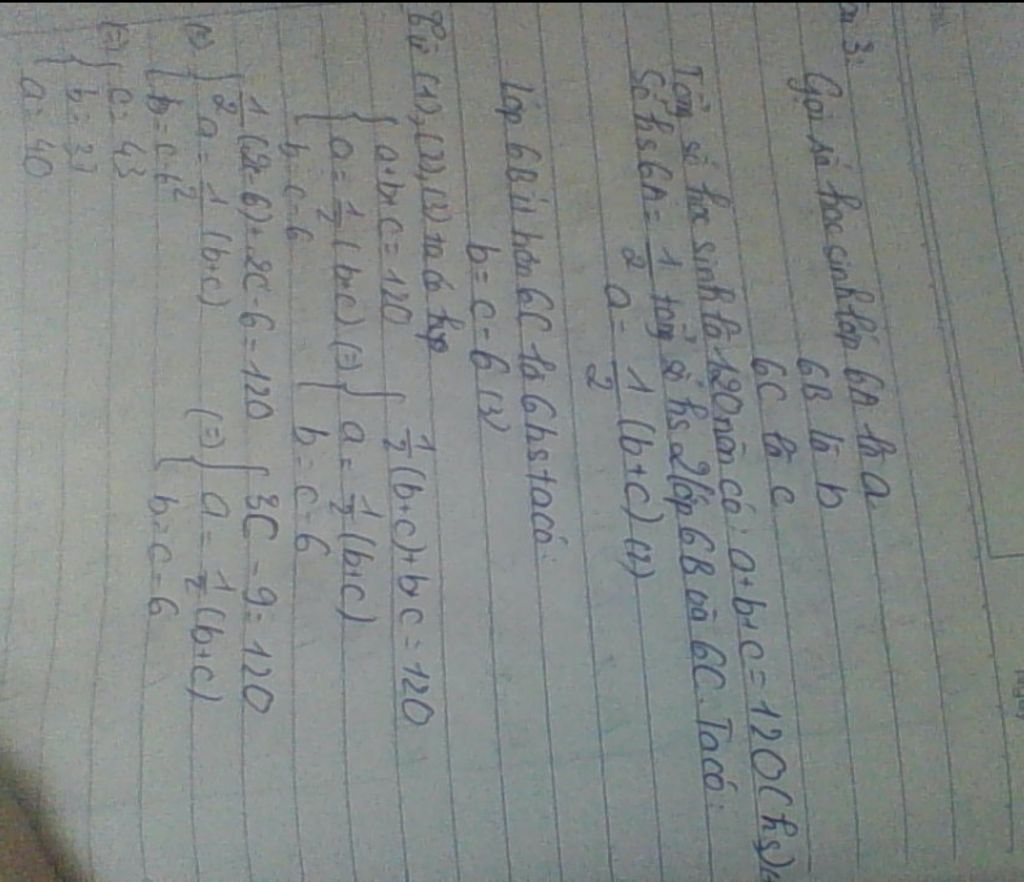 3:
Gọi số học sinh lớp 6A là a
6B là b
6C là c
Tổng số học sinh là 120 nên có: a+b+c=120(hs)
Số hs 6A = 1/2 tổng số hs 2 lớp 6B và 6C. Ta có:
a = 1/2 (b+c) (2)
Lớp 6B ít hơn 6C là 6 hs ta có:
b = c-6 (3)
Từ (1), (2), (3) ta có hệ
{ a+b+c=120 { 1/2(b+c)+b+c=120
{ a=1/2(b+c) (=) { a=1/2(b+c)
{ b=c-6 { b=c-6
{ 1/2(2c-6)+2c-6=120 { 3c-9=120
(=) { a=1/2(b+c) (=) { a=1/2(b+c)
{ b=c-6 { b=c-6
(=) { c=43
{ b=37
{ a=40